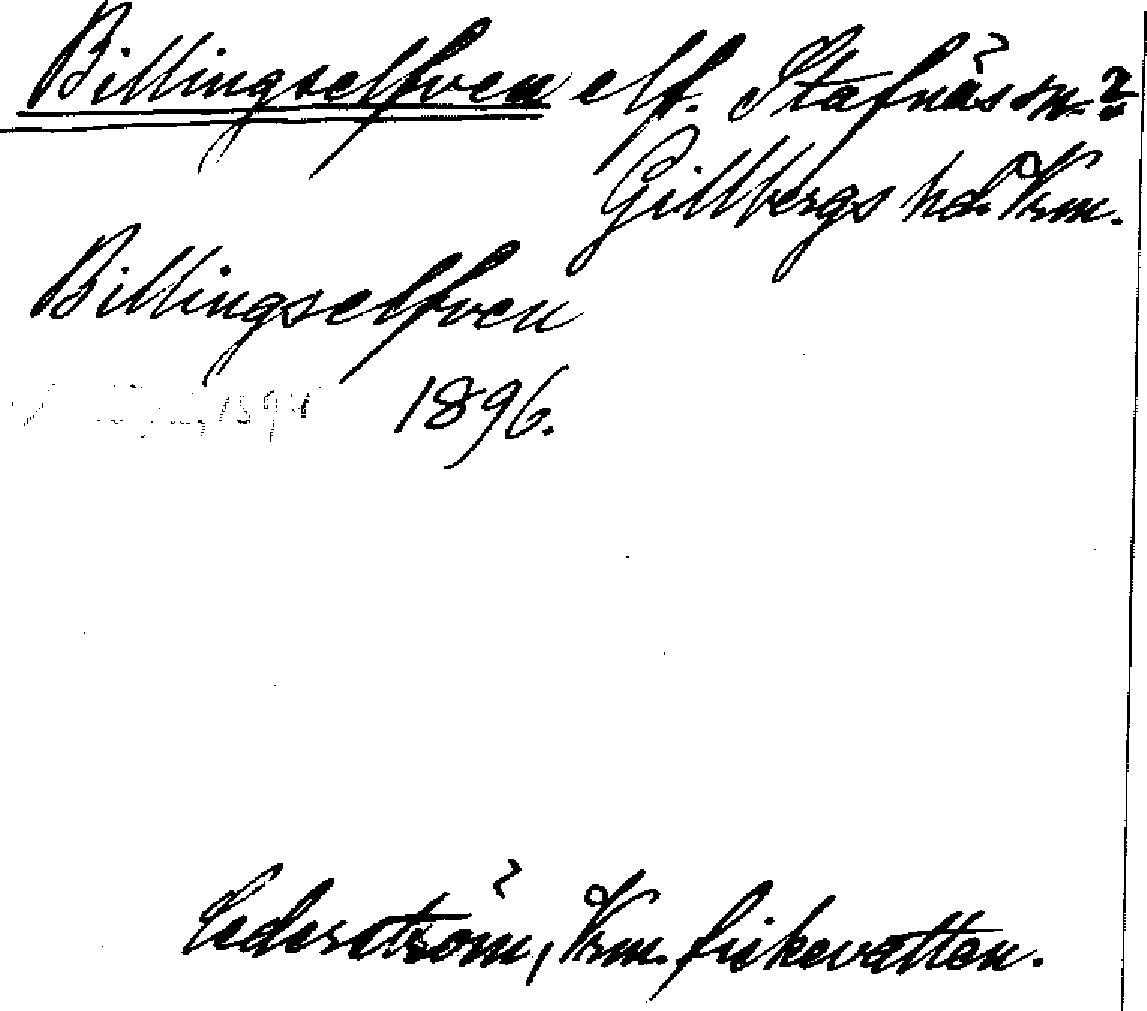 Billingselfven elf. Stafnäs sn?
Gillbergs hd. Vrm.
Billingselfven
1896.
Cederström, Vrm. fiskevatten.